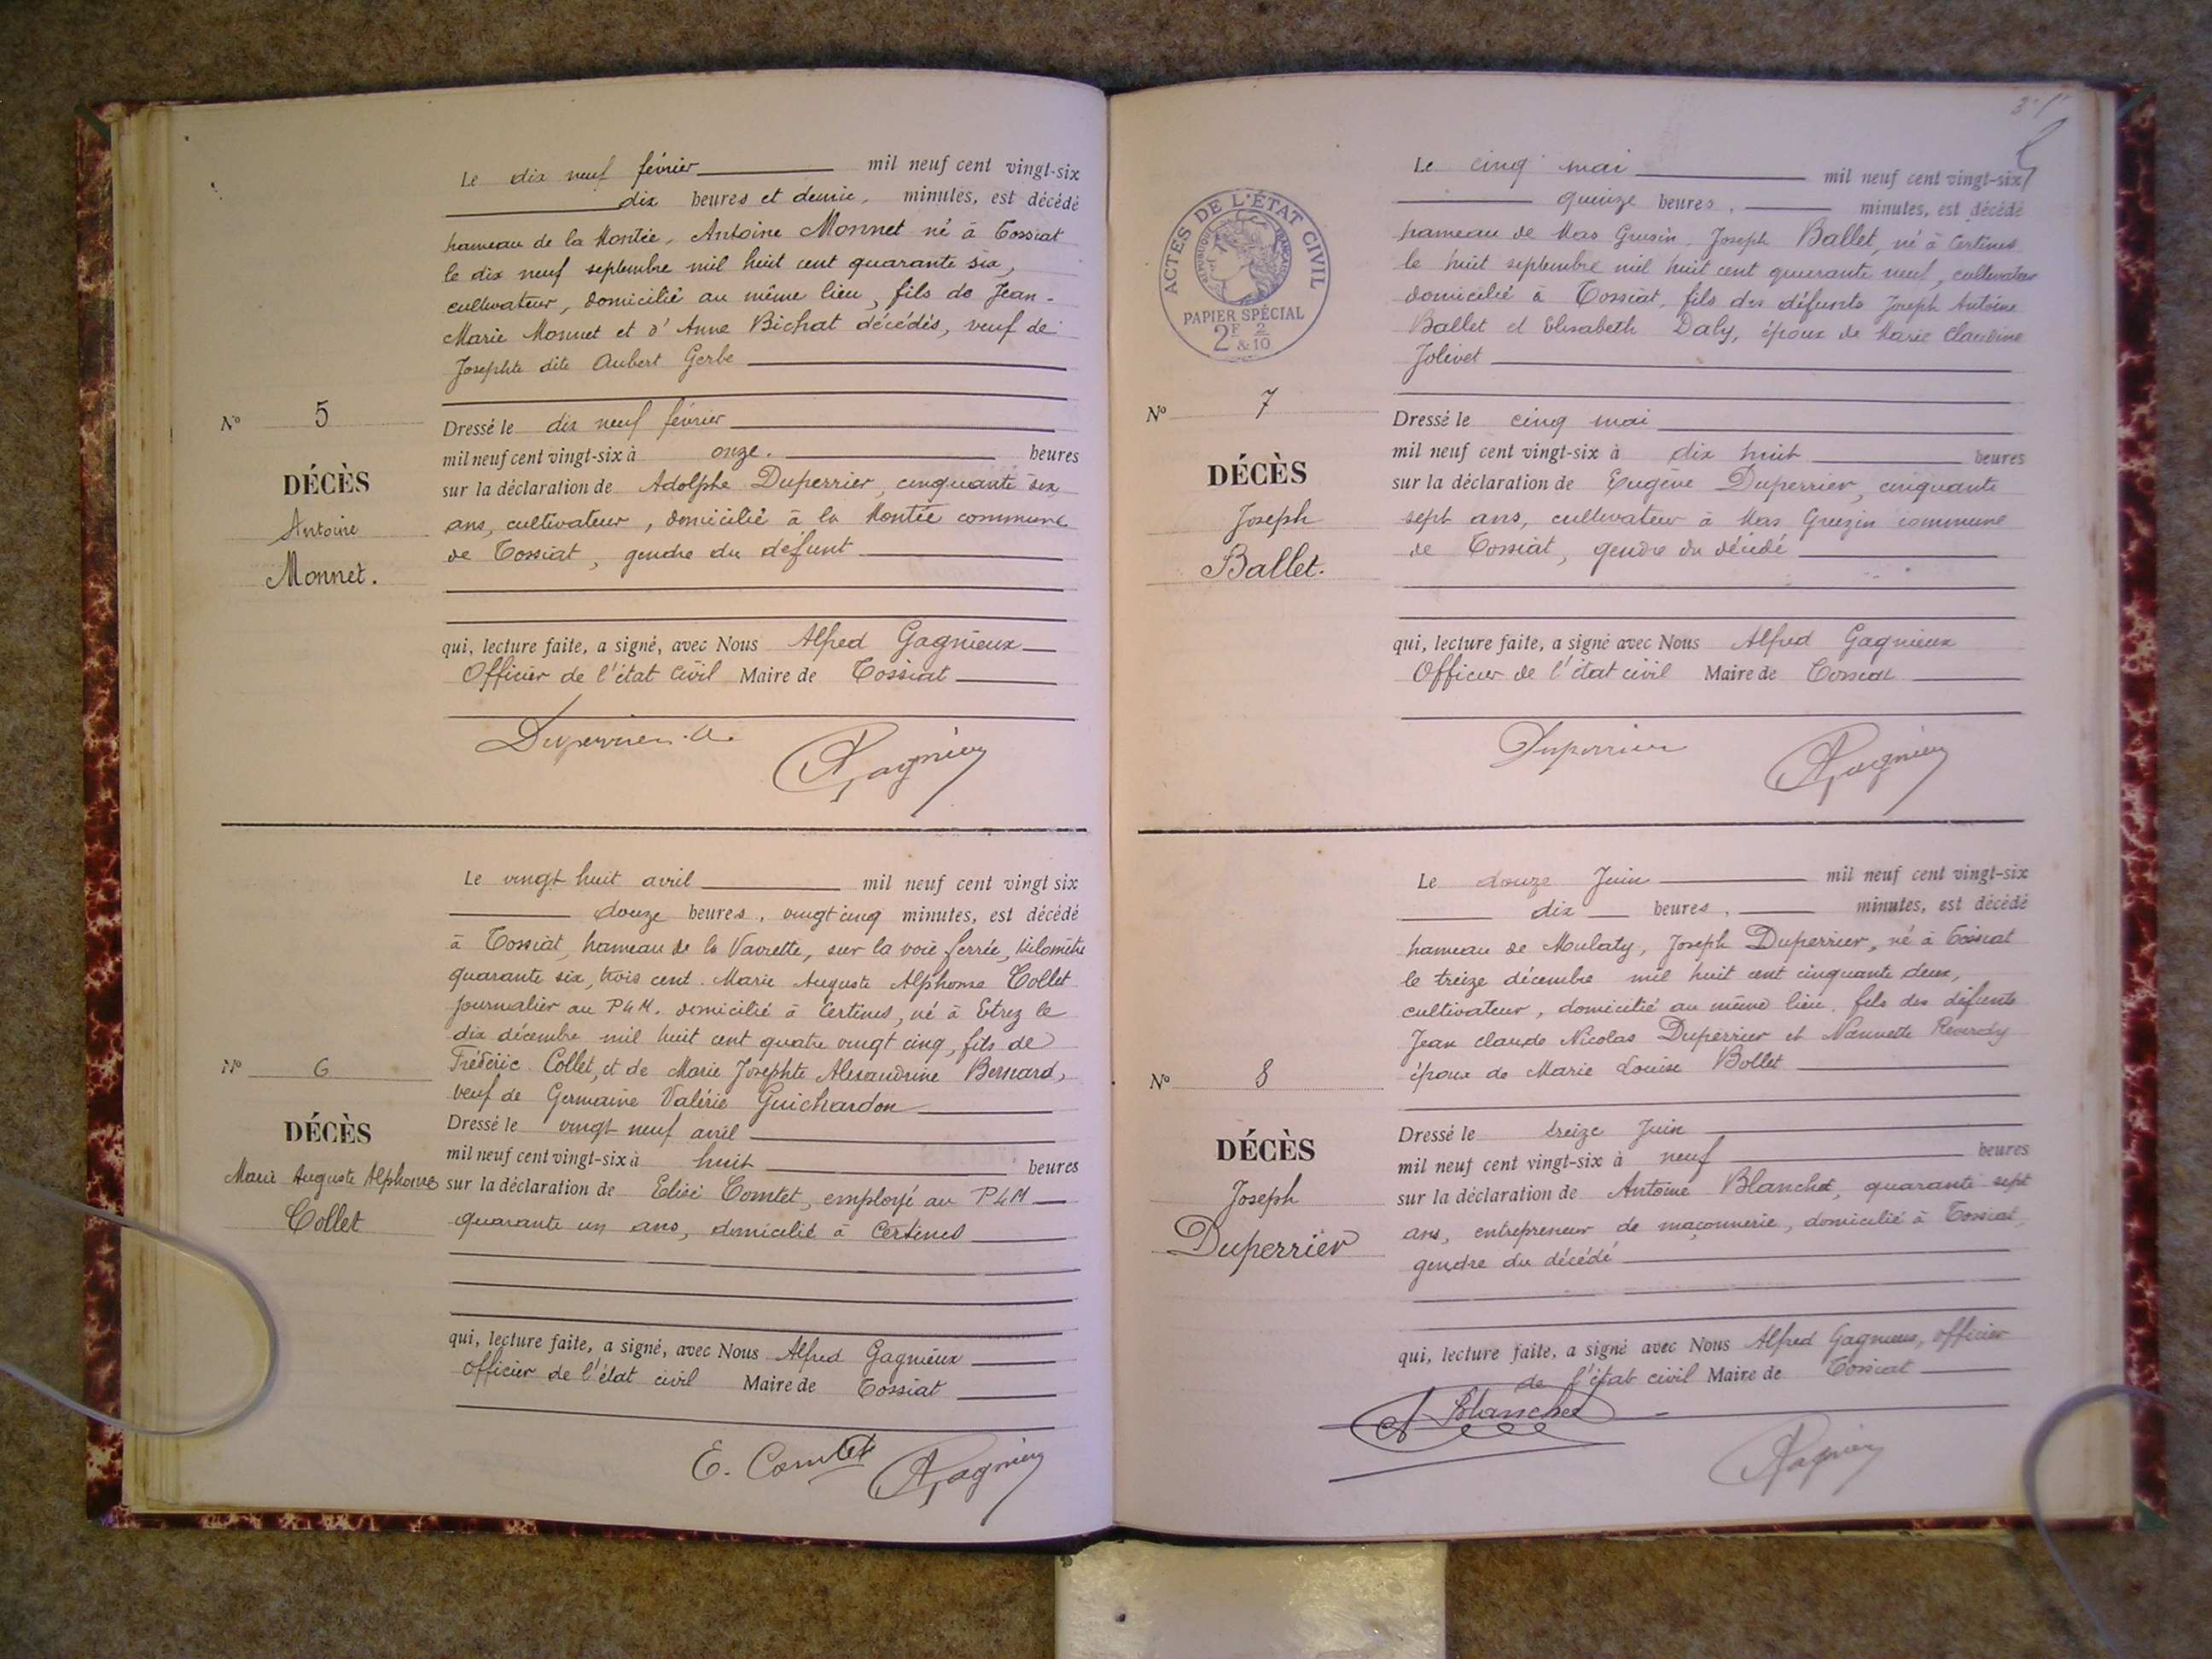 Le dix neuf février mil neuf cent vingt-six
dix heures et demie, minutes, est décédé
hameau de la Montée, Antoine Monnet né à Tossiat
le dix neuf septembre mil huit cent quarante six,
cultivateur, domicilié au même lieu, fils de Jean-
Marie Monnet et d'Anne Bichat décédés, veuf de
Josephte dite Aubert Gerbe
N° 5
DÉCÈS
Antoine
Monnet.
Dressé le dix neuf février
mil neuf cent vingt-six à onze. heures
sur la déclaration de Adolphe Duperrier, cinquante six
ans, cultivateur, domicilié à la Montée commune
de Tossiat, gendre du défunt
qui, lecture faite, a signé, avec Nous Alfred Gagnieux
Officier de l'état civil Maire de Tossiat
Duperrier. A.
A Gagnieux
Le vingt huit avril mil neuf cent vingt six
douze heures, vingt cinq minutes, est décédé
à Tossiat, hameau de la Vavrette, sur la voie ferrée, kilomètre
quarante six, trois cent. Marie Auguste Alphonse Collet
journalier au PLM. domicilié à Certines, né à Etrez le
dix décembre mil huit cent quatre vingt cinq, fils de
Frédéric Collet, et de Marie Josephte Alexandrine Bernard,
veuf de Germaine Valérie Guichardon
N° 6
DÉCÈS
Marie Auguste Alphonse
Collet
Dressé le vingt neuf avril
mil neuf cent vingt-six à huit heures
sur la déclaration de Elisé Comtet, employé au PLM
quarante un ans, domicilié à Certines
qui, lecture faite, a signé, avec Nous Alfred Gagnieux
officier de l'état civil Maire de Tossiat
E. Comtet
A Gagnieux
ACTES DE L'ÉTAT CIVIL
PAPIER SPÉCIAL
2F & 2/10
Le cinq mai mil neuf cent vingt-six
quinze heures, minutes, est décédé
hameau de Mas Grusin, Joseph Ballet, né à Certines
le huit septembre mil huit cent quarante neuf, cultivateur
domicilié à Tossiat, fils des défunts Joseph Antoine
Ballet et Elisabeth Daly, époux de Marie Claudine
Jolivet
N° 7
DÉCÈS
Joseph
Ballet.
Dressé le cinq mai
mil neuf cent vingt-six à dix huit heures
sur la déclaration de Eugène Duperrier, cinquante
sept ans, cultivateur à Mas Gruzin commune
de Tossiat, gendre du décédé
qui, lecture faite, a signé avec Nous Alfred Gagnieux
Officier de l'état civil Maire de Tossiat
Duperrier
A Gagnieux
Le douze Juin mil neuf cent vingt-six
dix heures, minutes, est décédé
hameau de Mulaty, Joseph Duperrier, né à Tossiat
le treize décembre mil huit cent cinquante deux,
cultivateur, domicilié au même lieu, fils des défunts
Jean claude Nicolas Duperrier et Nannette Reverdy
époux de Marie Louise Bollet
N° 8
DÉCÈS
Joseph
Duperrier
Dressé le treize Juin
mil neuf cent vingt-six à neuf heures
sur la déclaration de Antoine Blanchet, quarante sept
ans, entrepreneur de maçonnerie, domicilié à Tossiat,
gendre du décédé
qui, lecture faite, a signé avec Nous Alfred Gagnieux, officier
de l'état civil Maire de Tossiat
A Blanchet
A Gagnieux